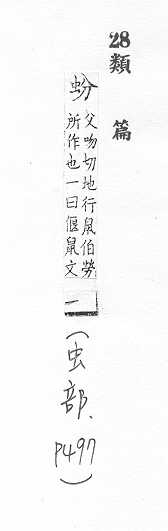 28類 篇
蚡
父吻切地行鼠伯勞
所作也一曰偃鼠文
一
(虫部、P497)